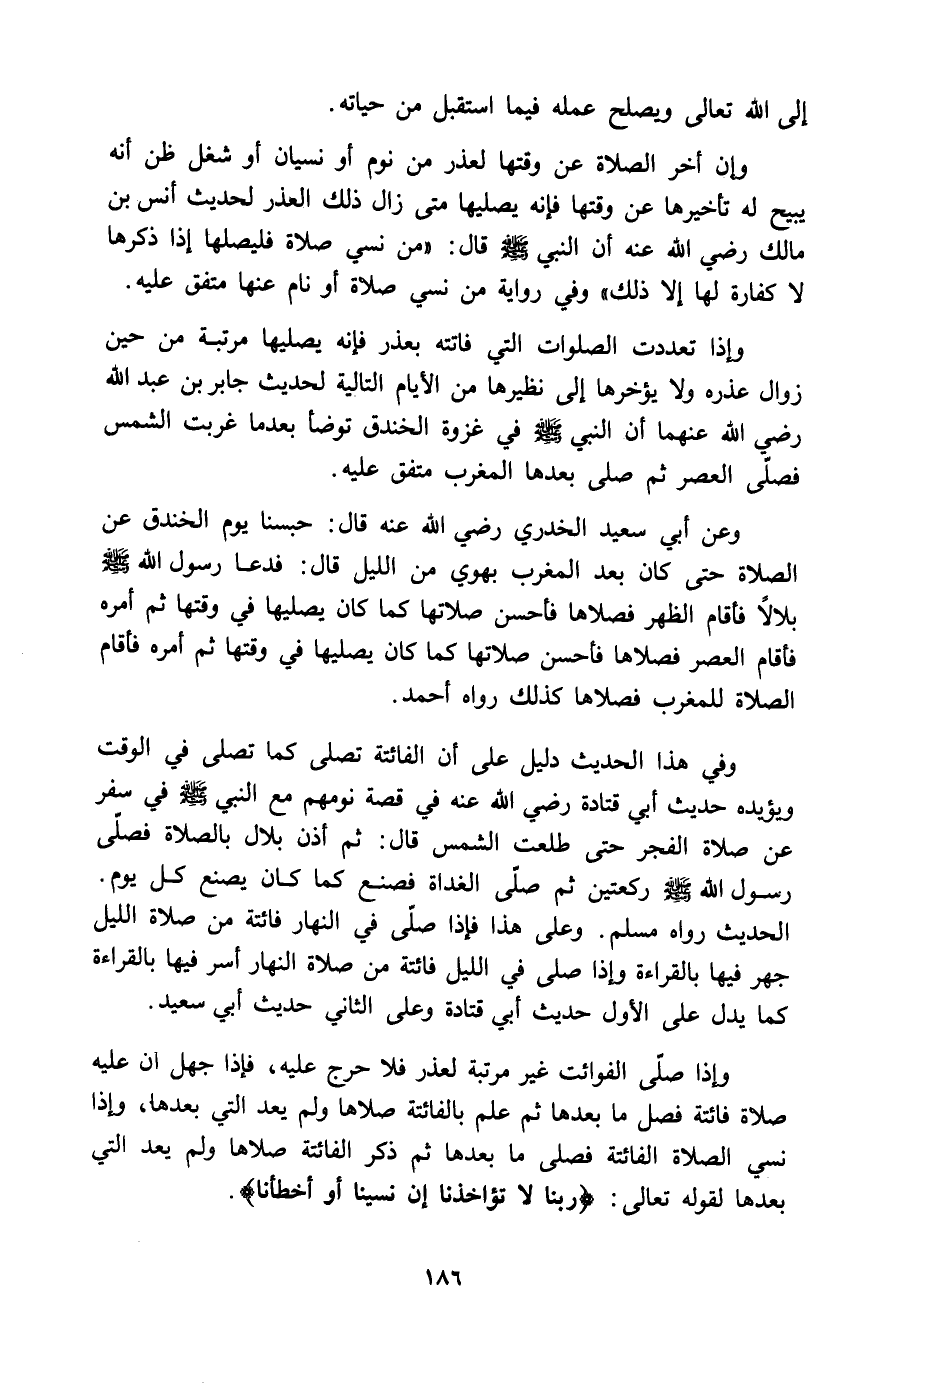 إلى الله تعالى ويصلح عمله فيما استقبل من حياته.
وإن أخر الصلاة عن وقتها لعذر من نوم أو نسيان أو شغل ظن أنه
يبيح له تأخيرها عن وقتها فإنه يصليها متى زال ذلك العذر لحديث أنس بن
مالك رضي الله عنه أن النبي ﷺ قال: «من نسي صلاة فليصلها إذا ذكرها
لا كفارة لها إلا ذلك» وفي رواية من نسي صلاة أو نام عنها متفق عليه.
وإذا تعددت الصلوات التي فاتته بعذر فإنه يصليها مرتبة من حين
زوال عذره ولا يؤخرها إلى نظيرها من الأيام التالية لحديث جابر بن عبد الله
رضي الله عنهما أن النبي ﷺ في غزوة الخندق توضأ بعدما غربت الشمس
فصلّى العصر ثم صلى بعدها المغرب متفق عليه.
وعن أبي سعيد الخدري رضي الله عنه قال: حبسنا يوم الخندق عن
الصلاة حتى كان بعد المغرب بهوي من الليل قال: فدعا رسول الله ﷺ
بلالاً فأقام الظهر فصلاها فأحسن صلاتها كما كان يصليها في وقتها ثم أمره
فأقام العصر فصلاها فأحسن صلاتها كما كان يصليها في وقتها ثم أمره فأقام
الصلاة للمغرب فصلاها كذلك رواه أحمد.
وفي هذا الحديث دليل على أن الفائتة تصلى كما تصلى في الوقت
ويؤيده حديث أبي قتادة رضي الله عنه في قصة نومهم مع النبي ﷺ في سفر
عن صلاة الفجر حتى طلعت الشمس قال: ثم أذن بلال بالصلاة فصلّى
رسول الله ﷺ ركعتين ثم صلّى الغداة فصنع كما كان يصنع كل يوم.
الحديث رواه مسلم. وعلى هذا فإذا صلّى في النهار فائتة من صلاة الليل
جهر فيها بالقراءة وإذا صلى في الليل فائتة من صلاة النهار أسر فيها بالقراءة
كما يدل على الأول حديث أبي قتادة وعلى الثاني حديث أبي سعيد.
وإذا صلّى الفوائت غير مرتبة لعذر فلا حرج عليه، فإذا جهل ان عليه
صلاة فائتة فصل ما بعدها ثم علم بالفائتة صلاها ولم يعد التي بعدها، وإذا
نسي الصلاة الفائتة فصلى ما بعدها ثم ذكر الفائتة صلاها ولم يعد التي
بعدها لقوله تعالى: ﴿ربنا لا تؤاخذنا إن نسينا أو أخطأنا﴾.
١٨٦